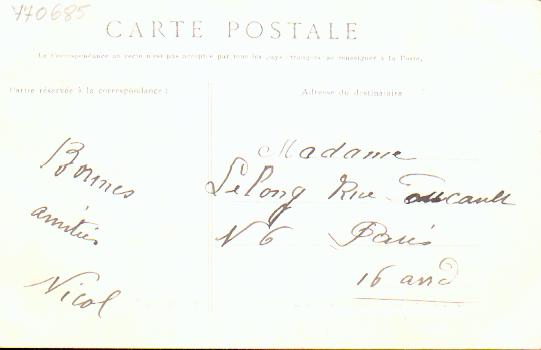 770685
CARTE POSTALE
La Correspondance au verso n'est pas acceptée par tous les pays étrangers, se renseigner à la Poste.
Partie réservée à la correspondance :
Adresse du destinataire
Bonnes
amitiés
Nicol
Madame
Lelong Rue Foucault
N 6 Paris
16 arrd